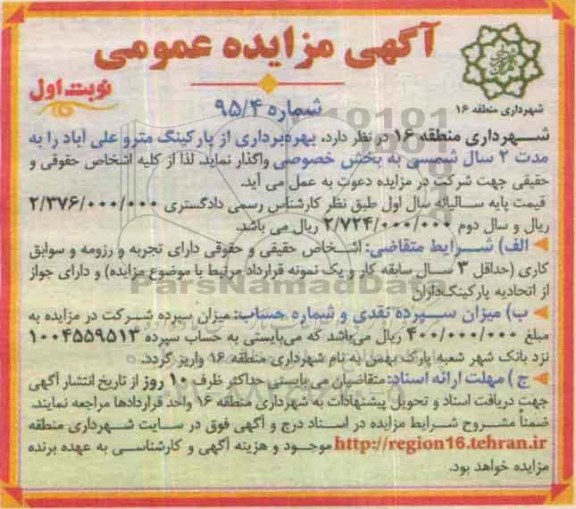 آگهی مزایده عمومی
نوبت اول
شهرداری منطقه ۱۶
شماره ۹۵/۴
شهرداری منطقه ۱۶ در نظر دارد، بهره‌برداری از پارکینگ مترو علی آباد را به
مدت ۲ سال شمسی به بخش خصوصی واگذار نماید. لذا از کلیه اشخاص حقوقی و
حقیقی جهت شرکت در مزایده دعوت به عمل می آید.
قیمت پایه سالیانه سال اول طبق نظر کارشناس رسمی دادگستری ۲/۳۷۶/۰۰۰/۰۰۰
ریال و سال دوم ۲/۷۲۴/۰۰۰/۰۰۰ ریال می باشد.
الف) شرایط متقاضی: اشخاص حقیقی و حقوقی دارای تجربه و رزومه و سوابق
کاری (حداقل ۳ سال سابقه کار و یک نمونه قرارداد مرتبط با موضوع مزایده) و دارای جواز
از اتحادیه پارکینگ‌داران
ParsNamadData
ب) میزان سپرده نقدی و شماره حساب: میزان سپرده شرکت در مزایده به
مبلغ ۴۰۰/۰۰۰/۰۰۰ ریال می‌باشد که می‌بایستی به حساب سپرده ۱۰۰۴۵۵۹۵۱۳
نزد بانک شهر شعبه پارک بهمن به نام شهرداری منطقه ۱۶ واریز گردد.
ج) مهلت ارائه اسناد: متقاضیان می بایستی حداکثر ظرف ۱۰ روز از تاریخ انتشار آگهی
جهت دریافت اسناد و تحویل پیشنهادات به شهرداری منطقه ۱۶ واحد قراردادها مراجعه نمایند.
ضمناً مشروح شرایط مزایده در اسناد درج و آگهی فوق در سایت شهرداری منطقه
http://region16.tehran.ir موجود و هزینه آگهی و کارشناسی به عهده برنده
مزایده خواهد بود.